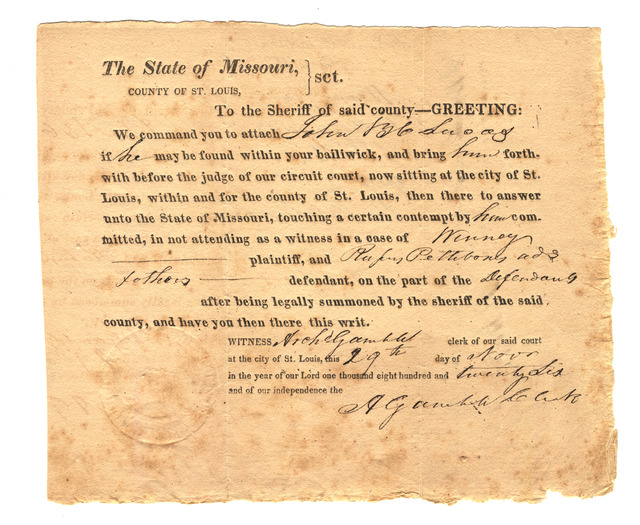 The State of Missouri, } sct.
COUNTY OF ST. LOUIS,
To the Sheriff of said county—GREETING:
We command you to attach John B C Lucas
if he may be found within your bailiwick, and bring him forth-
with before the judge of our circuit court, now sitting at the city of St.
Louis, within and for the county of St. Louis, then there to answer
unto the State of Missouri, touching a certain contempt by him com-
mitted, in not attending as a witness in a case of Winney
plaintiff, and Rufus Pettibone ads
& others defendant, on the part of the Defendant
after being legally summoned by the sheriff of the said
county, and have you then there this writ.
WITNESS Archd Gamble clerk of our said court
at the city of St. Louis, this 29th day of Novr
in the year of our Lord one thousand eight hundred and twenty Six
and of our independence the
A Gamble Clerk